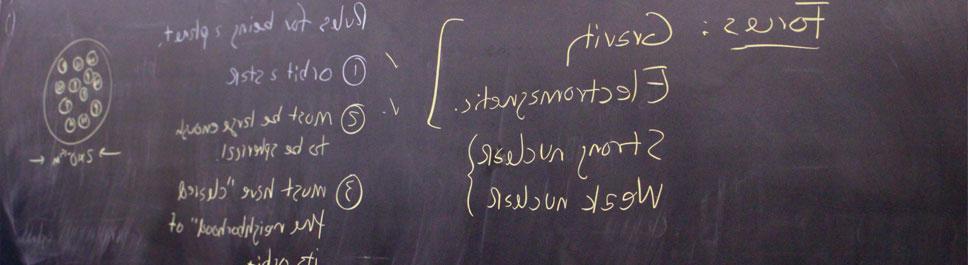 Forces:
Gravity
Electromagnetic.
Strong nuclear
Weak nuclear
Rules for being a planet.
① orbit a star
② Must be large enough
to be spherical.
③ must have "cleared
the neighborhood" of
its orbit